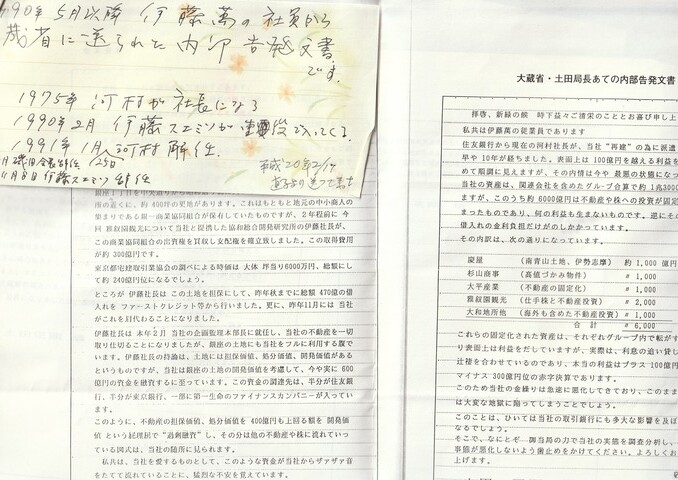 1990年5月以降 伊藤萬の社員から
蔵省に送られた内部告発文書
です。
1975年 河村が社長になる
1990年2月 伊藤スエミツが 重役で入ってくる
1991年1月 河村解任
125日
11月8日 伊藤スエミツ 辞任
平成20年2/14
銀座1丁目の
所の近くに、約400坪の更地があります。これはもともと地元の中小商人の
集まりである銀一商業協同組合が保有していたものですが、2年程前に 今
回 雅叙園観光について当社と提携した協和総合開発研究所の伊藤社長が、
この商業協同組合の出資権を買収し支配権を確立致しました。この取得費用が
約300億円です。
東京都宅建取引業協会の調べによる時価は 大体 坪当り6000万円、総額にし
て約240億円位になるでしょう。
ところが 伊藤社長は この土地を担保にして、昨年秋までに総額 470億の借
入れを ファーストクレジット等から行いました。更に、昨年11月には 当社
がこれを肩代わることになりました。
伊藤社長は 本年2月 当社の企画管理本部長に就任し、当社の不動産を一切
取り仕切ることになりましたが、銀座の土地にも当社をフルに利用する腹で
います。伊藤社長の持論は、土地には担保価値、処分価値、開発価値がある
というものですが、当社は銀座の土地の開発価値を考慮して、今や実に 600
億円の資金を融資するに至っています。この資金の調達先は、半分が住友銀
行、半分が東京銀行、一部に第一生命のファイナンスカンパニーが入ってい
ます。
このように、不動産の担保価値、処分価値を 400億円も上回る額を 開発価
値 という屁理屈で "過剰融資" し、その分は他の不動産や株に流れていっ
ている図式は、当社の随所に見られます。
私共は、当社を愛するものとして、このような資金が当社からザァザァ音
をたてて流れていることに、猛烈な不安を覚えています。
大蔵省・土田局長あての内部告発文書
拝啓、新緑の候 時下益々ご清栄のこととお喜び申し上
私共は伊藤萬の従業員であります
住友銀行から現在の河村社長が、当社 "再建" の為に派遣
早や 10年が経ちました。表面上は 100億円を越える利益を
めて順調に見えますが、その内情は今や 最悪の状態になっ
当社の資産は、関連会社を含めたグループ合算で 約1兆300
ますが、このうち約 6000億円は不動産や株への投資が固定
まったものであり、何の利も生まないものです。逆にそ
借入れの金利負担だけがのしかかっています。
その内訳は、次の通りになっています。
慶屋 （南青山土地、伊勢志摩） 約 1,000 億円
杉山商事 （高値づかみ物件） 〃 1,000
太平産業 （不動産の固定化） 〃 1,000
雅叙園観光（仕手株と不動産投資） 〃 2,000
大和地所他（海外も含めた不動産投資） 〃 1,000
合 計 〃 6,000
これらの固定化された資産は、それぞれグループ内で転がす
り表面上は利益をだしていますが、実際は、利息の追い貸し
辻褄を合わせているのであり、本当の利益はプラス 100億円
マイナス 300億円位の赤字決算であります。
このため当社の金繰りは急速に悪化してきており、このまま
は大変な地獄に陥ってしまうことでしょう。
このことは、ひいては当社の取引銀行にも多大な影響を及ぼ
なるでしょう。
そこで、なにとぞ 御当局の力で当社の実態を調査分析し、
事態が悪化しないよう歯止めをかけてください。よろしくお
上げます。